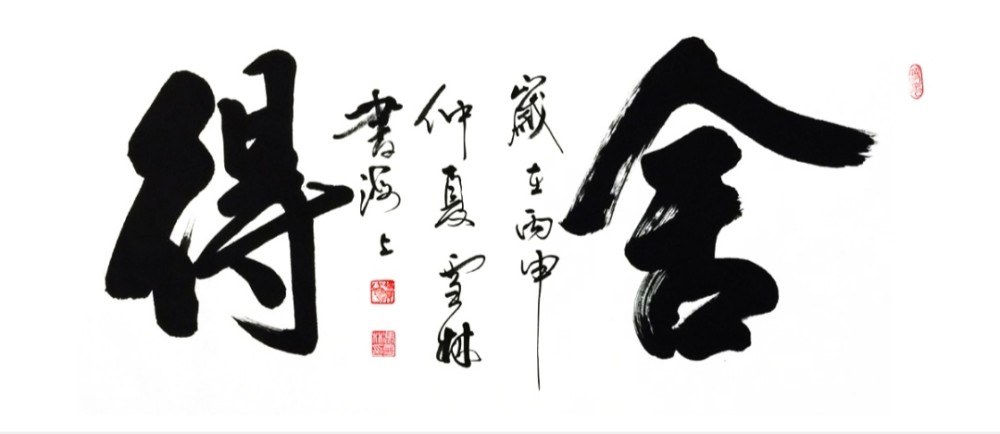 舍
歲在丙申
仲夏雪林
書海上
得